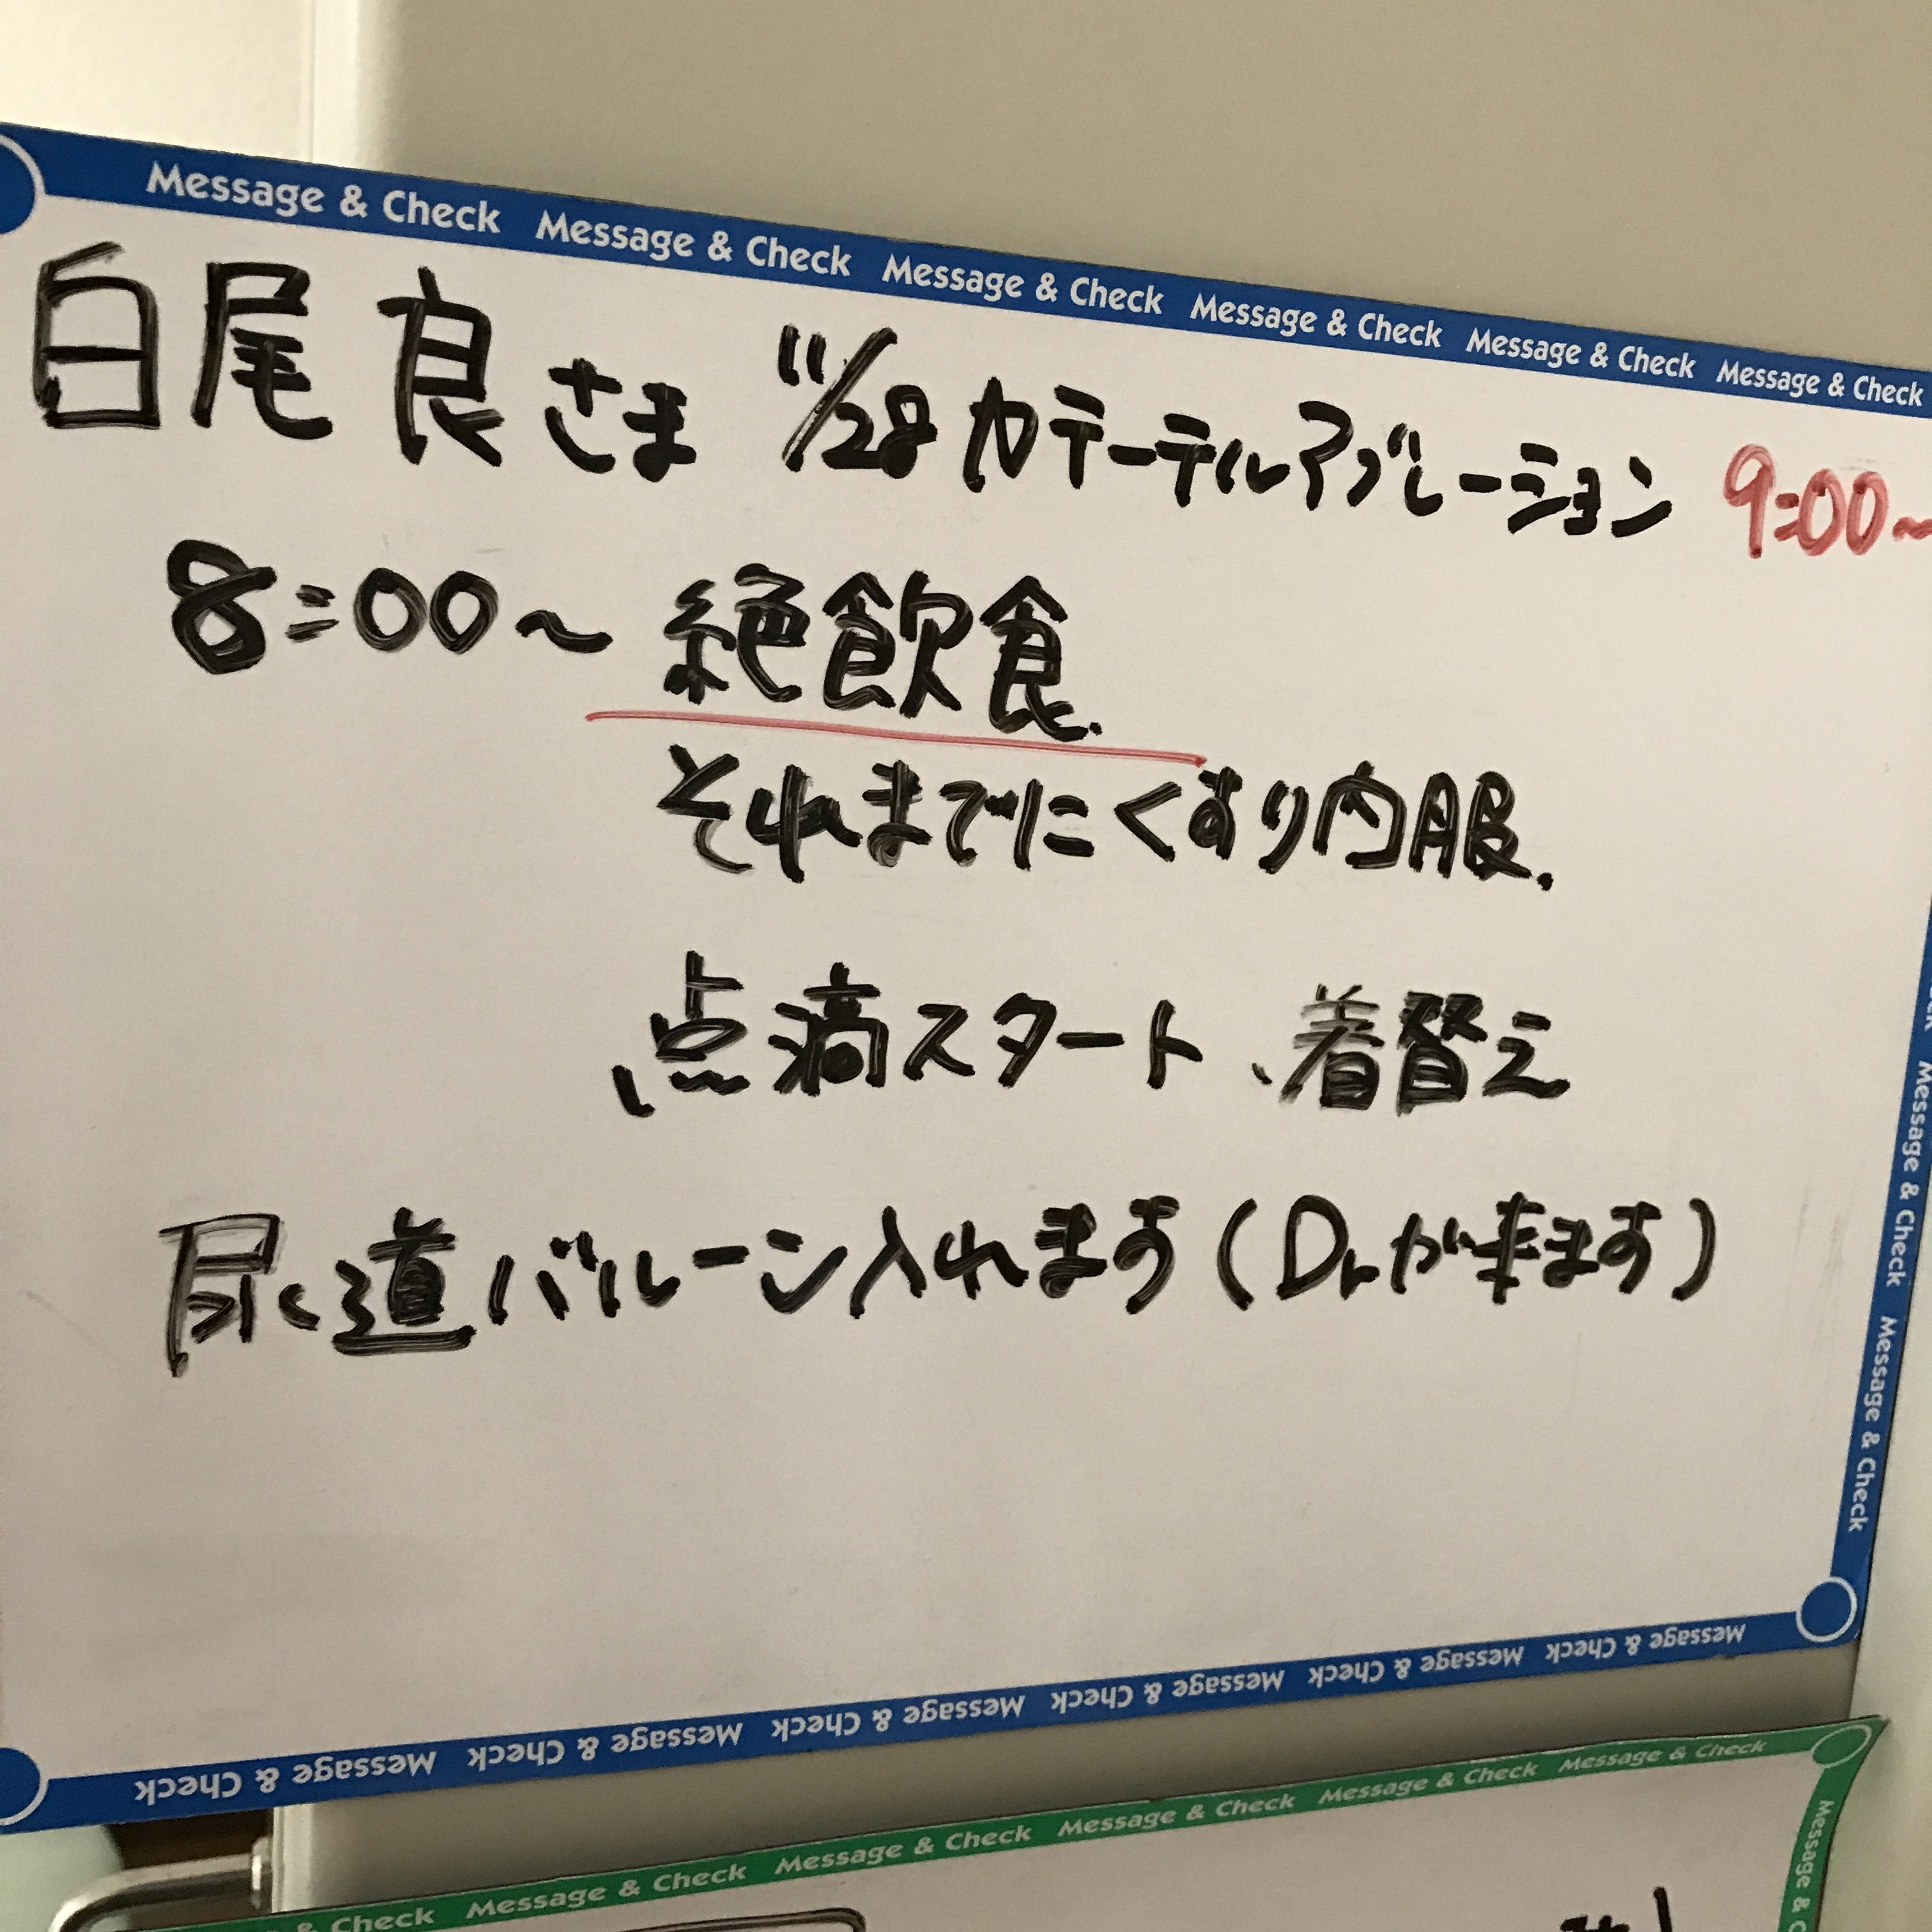 Message & Check Message & Check Message & Check Message & Check Message & Check Message & Check
白尾 良 さま 11/28 カテーテルアブレーション 9:00~
8:00~ 絶飲食.
それまでにくすり内服.
点滴スタート、着替え
尿道バルーン入れます(Drが来ます)
Message & Check Message & Check
Message & Check Message & Check Message & Check Message & Check Message & Check Message & Check
& Check Message & Check Message & Check Message & Check Message & Check
Message &